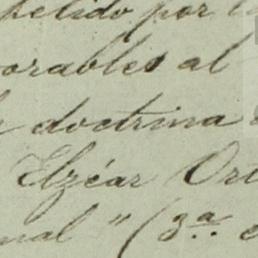 petido por l
orables al
doctrina
Elzéar Ort
nal" (3ª. e